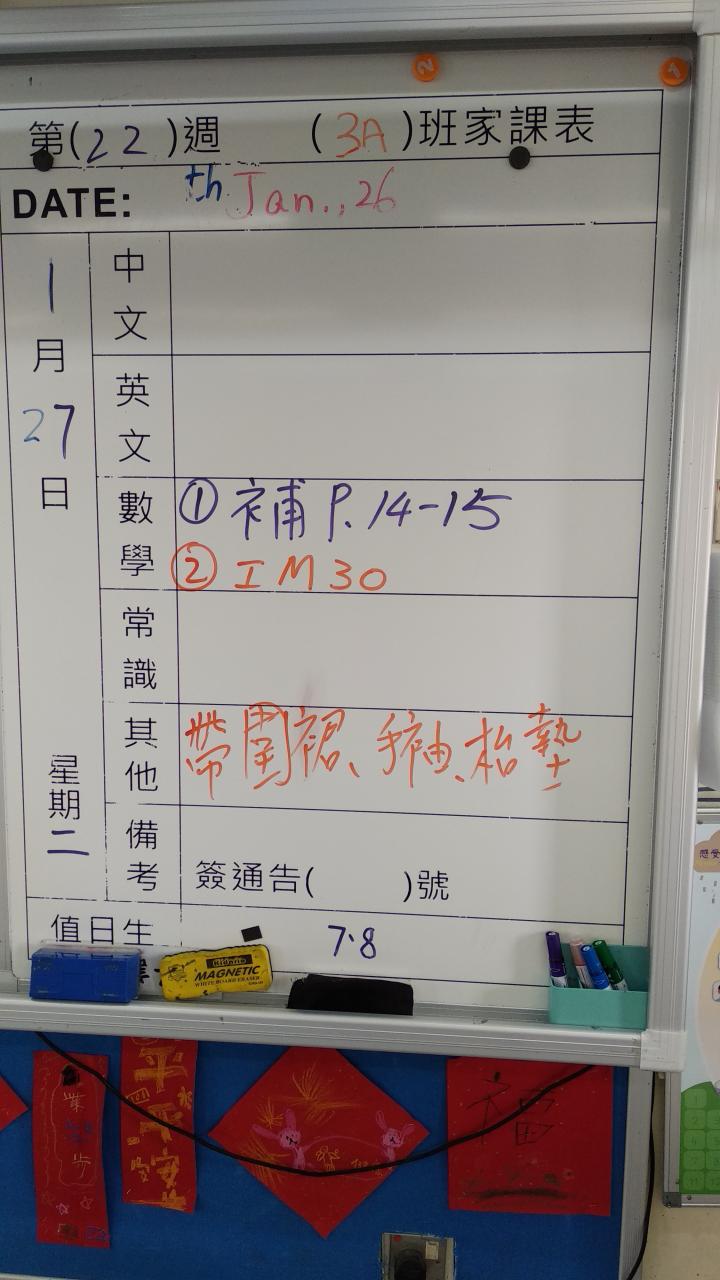 第(22)週 (3A)班家課表
DATE: th Jan., 26
1月27日 星期二
中文
英文
數學
① 補 P. 14-15
② IM30
常識
其他
帶圍裙、手袖、枱墊
備考
簽通告( )號
值日生 7.8
MAGNETIC
WHITE BOARD ERASER
2
1
感受
平平安安
步
福